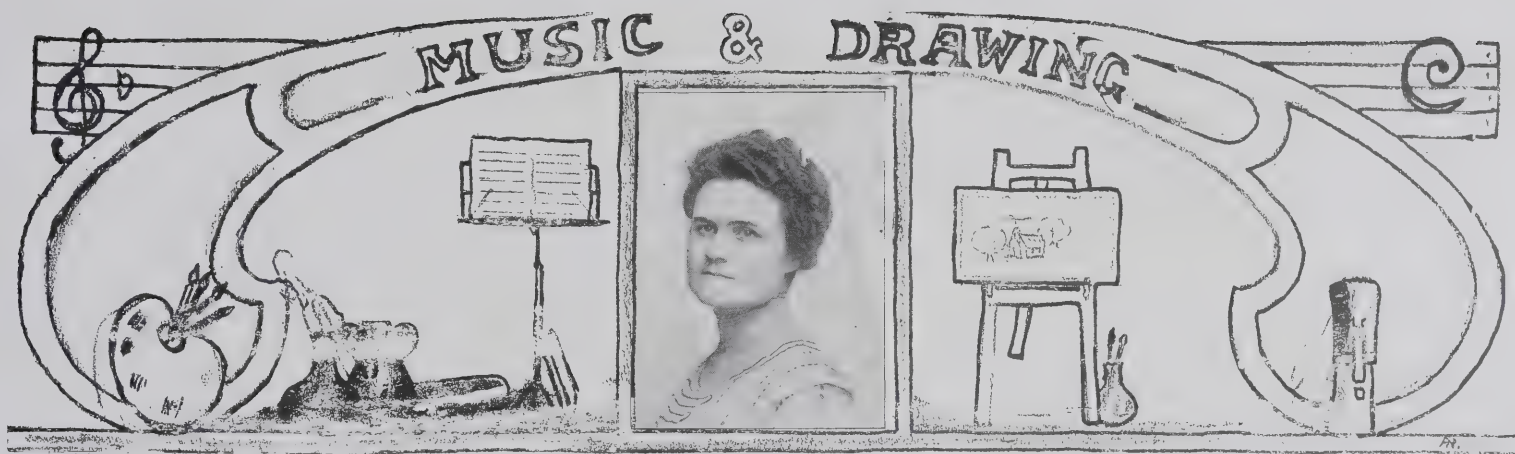 MUSIC & DRAWING